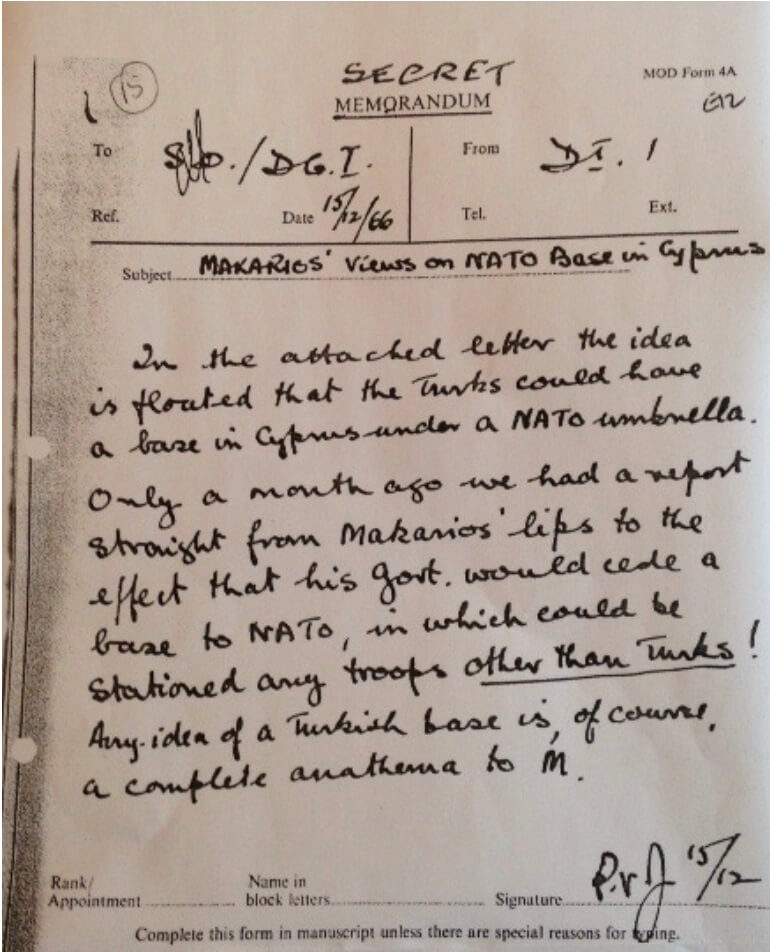 15
SECRET
MOD Form 4A
MEMORANDUM
E12
To /DG.I.
From DI. 1
Ref.
Date 15/12/66
Tel.
Ext.
Subject MAKARIOS' Views on NATO Base in Cyprus
In the attached letter the idea
is floated that the Turks could have
a base in Cyprus under a NATO umbrella.
Only a month ago we had a report
straight from Makarios' lips to the
effect that his Govt. would cede a
base to NATO, in which could be
stationed any troops other than Turks!
Any idea of a Turkish base is, of course,
a complete anathema to M.
Rank/
Appointment
Name in
block letters
Signature 15/12
Complete this form in manuscript unless there are special reasons for typing.